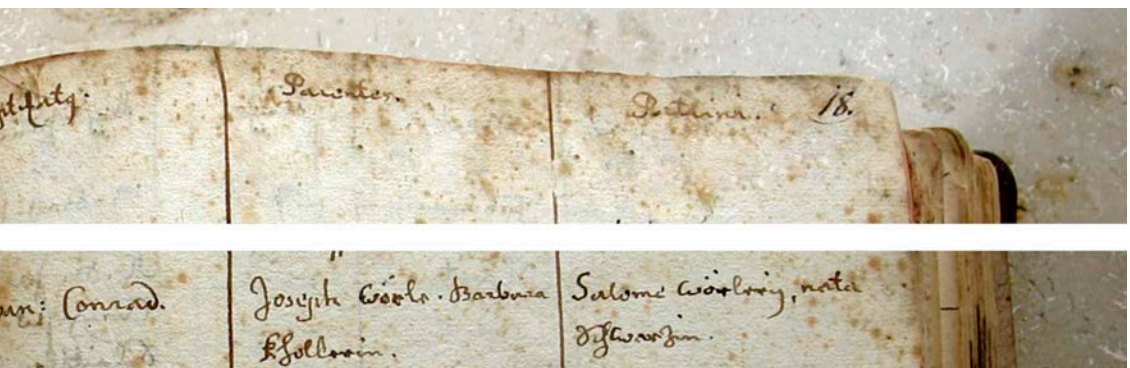 Parentes. Patrini. 18.
Conrad. Joseph Wörle. Barbara Salome Wörlerin, nata
Khollerin.